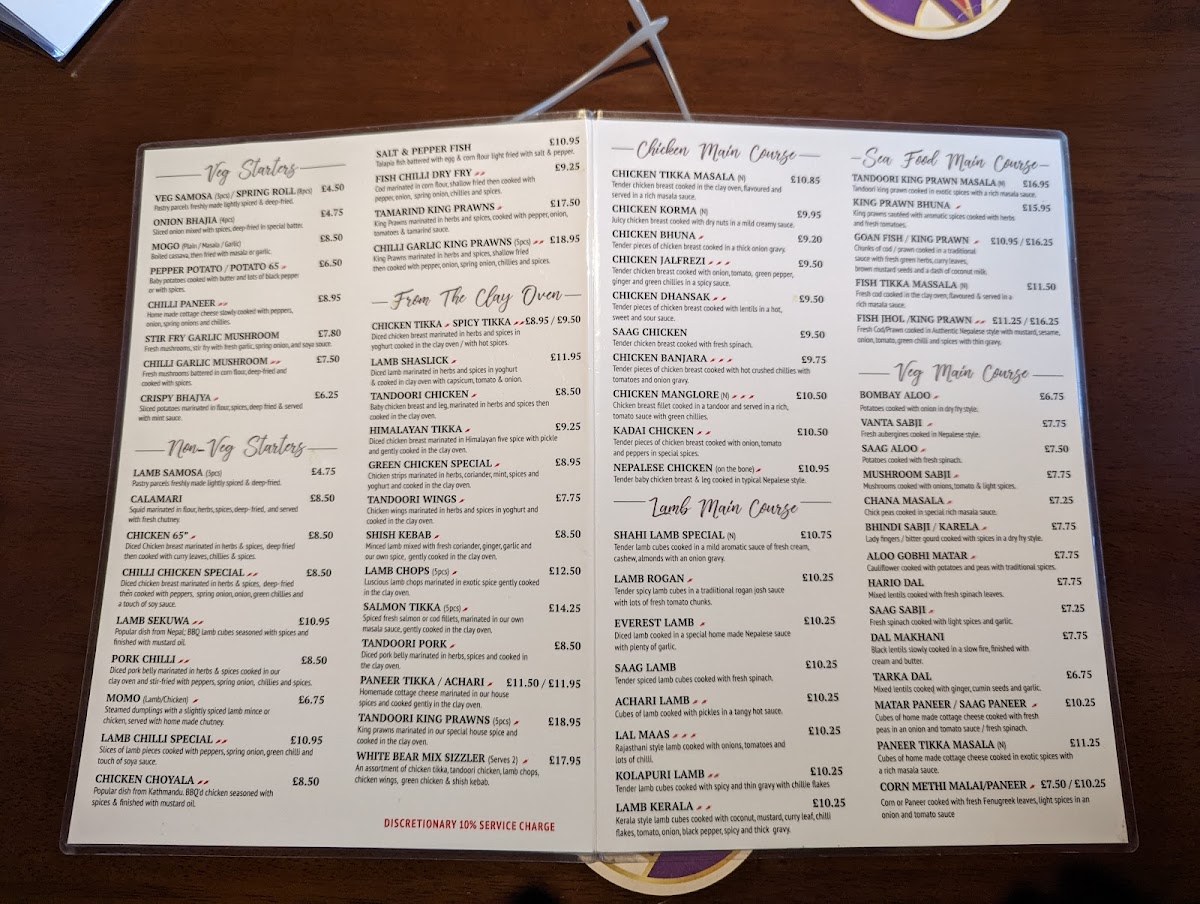 Veg Starters
VEG SAMOSA (3pcs) / SPRING ROLL (8pcs) £4.50
Pastry parcels freshly made lightly spiced & deep-fried.
ONION BHAJIA (4pcs) £4.75
Sliced onion mixed with spices, deep-fried in special batter.
MOGO (Plain / Masala / Garlic) £8.50
Boiled cassava, then fried with masala or garlic.
PEPPER POTATO / POTATO 65 £6.50
Baby potatoes cooked with butter and lots of black pepper
or with spices.
CHILLI PANEER £8.95
Home made cottage cheese slowly cooked with peppers,
onion, spring onions and chillies.
STIR FRY GARLIC MUSHROOM £7.80
Fresh mushrooms, stir fry with fresh garlic, spring onion, and soya sauce.
CHILLI GARLIC MUSHROOM £7.50
Fresh mushrooms battered in corn flour, deep-fried and
cooked with spices.
CRISPY BHAJYA £6.25
Sliced potatoes marinated in flour, spices, deep fried & served
with mint sauce.
Non-Veg Starters
LAMB SAMOSA (3pcs) £4.75
Pastry parcels freshly made lightly spiced & deep-fried.
CALAMARI £8.50
Squid marinated in flour, herbs, spices, deep- fried, and served
with fresh chutney.
CHICKEN 65" £8.50
Diced Chicken breast marinated in herbs & spices, deep fried
then cooked with curry leaves, chillies & spices.
CHILLI CHICKEN SPECIAL £8.50
Diced chicken breast marinated in herbs & spices, deep- fried
then cooked with peppers, spring onion, onion, green chillies and
a touch of soy sauce.
LAMB SEKUWA £10.95
Popular dish from Nepal; BBQ lamb cubes seasoned with spices and
finished with mustard oil.
PORK CHILLI £8.50
Diced pork belly marinated in herbs & spices cooked in our
clay oven and stir-fried with peppers, spring onion, chillies and spices.
MOMO (Lamb/Chicken) £6.75
Steamed dumplings with a slightly spiced lamb mince or
chicken, served with home made chutney.
LAMB CHILLI SPECIAL £10.95
Slices of lamb pieces cooked with peppers, spring onion, green chilli and
touch of soya sauce.
CHICKEN CHOYALA £8.50
Popular dish from Kathmandu. BBQ'd chicken seasoned with
spices & finished with mustard oil.
SALT & PEPPER FISH £10.95
Talapia fish battered with egg & corn flour light fried with salt & pepper.
FISH CHILLI DRY FRY £9.25
Cod marinated in corn flour, shallow fried then cooked with
pepper, onion, spring onion, chillies and spices.
TAMARIND KING PRAWNS £17.50
King Prawns marinated in herbs and spices, cooked with pepper, onion,
tomatoes & tamarind sauce.
CHILLI GARLIC KING PRAWNS (5pcs) £18.95
King Prawns marinated in herbs and spices, shallow fried
then cooked with pepper, onion, spring onion, chillies and spices.
From The Clay Oven
CHICKEN TIKKA SPICY TIKKA £8.95 / £9.50
Diced chicken breast marinated in herbs and spices in
yoghurt cooked in the clay oven / with hot spices.
LAMB SHASLICK £11.95
Diced lamb marinated in herbs and spices in yoghurt
& cooked in clay oven with capsicum, tomato & onion.
TANDOORI CHICKEN £8.50
Baby chicken breast and leg, marinated in herbs and spices then
cooked in the clay oven.
HIMALAYAN TIKKA £9.25
Diced chicken breast marinated in Himalayan five spice with pickle
and gently cooked in the clay oven.
GREEN CHICKEN SPECIAL £8.95
Chicken strips marinated in herbs, coriander, mint, spices and
yoghurt and cooked in the clay oven.
TANDOORI WINGS £7.75
Chicken wings marinated in herbs and spices in yoghurt and
cooked in the clay oven.
SHISH KEBAB £8.50
Minced lamb mixed with fresh coriander, ginger, garlic and
our own spice, gently cooked in the clay oven.
LAMB CHOPS (5pcs) £12.50
Luscious lamb chops marinated in exotic spice gently cooked
in the clay oven.
SALMON TIKKA (5pcs) £14.25
Spiced fresh salmon or cod fillets, marinated in our own
masala sauce, gently cooked in the clay oven.
TANDOORI PORK £8.50
Diced pork belly marinated in herbs, spices and cooked in
the clay oven.
PANEER TIKKA / ACHARI £11.50 / £11.95
Homemade cottage cheese marinated in our house
spices and cooked gently in the clay oven.
TANDOORI KING PRAWNS (5pcs) £18.95
King prawns marinated in our special house spice and
cooked in the clay oven.
WHITE BEAR MIX SIZZLER (Serves 2) £17.95
An assortment of chicken tikka, tandoori chicken, lamb chops,
chicken wings, green chicken & shish kebab.
DISCRETIONARY 10% SERVICE CHARGE
Chicken Main Course
CHICKEN TIKKA MASALA (N) £10.85
Tender chicken breast cooked in the clay oven, flavoured and
served in a rich masala sauce.
CHICKEN KORMA (N) £9.95
Juicy chicken breast cooked with dry nuts in a mild creamy sauce.
CHICKEN BHUNA £9.20
Tender pieces of chicken breast cooked in a thick onion gravy.
CHICKEN JALFREZI £9.50
Tender chicken breast cooked with onion, tomato, green pepper,
ginger and green chillies in a spicy sauce.
CHICKEN DHANSAK £9.50
Tender pieces of chicken breast cooked with lentils in a hot,
sweet and sour sauce.
SAAG CHICKEN £9.50
Tender chicken breast cooked with fresh spinach.
CHICKEN BANJARA £9.75
Tender pieces of chicken breast cooked with hot crushed chillies with
tomatoes and onion gravy.
CHICKEN MANGLORE (N) £10.50
Chicken breast fillet cooked in a tandoor and served in a rich,
tomato sauce with green chillies.
KADAI CHICKEN £10.50
Tender pieces of chicken breast cooked with onion, tomato
and peppers in special spices.
NEPALESE CHICKEN (on the bone) £10.95
Tender baby chicken breast & leg cooked in typical Nepalese style.
Lamb Main Course
SHAHI LAMB SPECIAL (N) £10.75
Tender lamb cubes cooked in a mild aromatic sauce of fresh cream,
cashew, almonds with an onion gravy.
LAMB ROGAN £10.25
Tender spicy lamb cubes in a traditional rogan josh sauce
with lots of fresh tomato chunks.
EVEREST LAMB £10.25
Diced lamb cooked in a special home made Nepalese sauce
with plenty of garlic.
SAAG LAMB £10.25
Tender spiced lamb cubes cooked with fresh spinach.
ACHARI LAMB £10.25
Cubes of lamb cooked with pickles in a tangy hot sauce.
LAL MAAS £10.25
Rajasthani style lamb cooked with onions, tomatoes and
lots of chilli.
KOLAPURI LAMB £10.25
Tender lamb cubes cooked with spicy and thin gravy with chillie flakes
LAMB KERALA £10.25
Kerala style lamb cubes cooked with coconut, mustard, curry leaf, chilli
flakes, tomato, onion, black pepper, spicy and thick gravy.
Sea Food Main Course
TANDOORI KING PRAWN MASALA (N) £16.95
Tandoori king prawn cooked in exotic spices with a rich masala sauce.
KING PRAWN BHUNA £15.95
King prawns sautéed with aromatic spices cooked with herbs
and fresh tomatoes.
GOAN FISH / KING PRAWN £10.95 / £16.25
Chunks of cod / prawn cooked in a traditional
sauce with fresh green herbs, curry leaves,
brown mustard seeds and a dash of coconut milk.
FISH TIKKA MASSALA (N) £11.50
Fresh cod cooked in the clay oven, flavoured & served in a
rich masala sauce.
FISH JHOL /KING PRAWN £11.25 / £16.25
Fresh Cod/Prawn cooked in Authentic Nepalese style with mustard, sesame,
onion, tomato, green chilli and spices with thin gravy.
Veg Main Course
BOMBAY ALOO £6.75
Potatoes cooked with onion in dry fry style.
VANTA SABJI £7.75
Fresh aubergines cooked in Nepalese style.
SAAG ALOO £7.50
Potatoes cooked with fresh spinach.
MUSHROOM SABJI £7.75
Mushrooms cooked with onions, tomato & light spices.
CHANA MASALA £7.25
Chick peas cooked in special rich masala sauce.
BHINDI SABJI / KARELA £7.75
Lady fingers / bitter gourd cooked with spices in a dry fry style.
ALOO GOBHI MATAR £7.75
Cauliflower cooked with potatoes and peas with traditional spices.
HARIO DAL £7.75
Mixed lentils cooked with fresh spinach leaves.
SAAG SABJI £7.25
Fresh spinach cooked with light spices and garlic.
DAL MAKHANI £7.75
Black lentils slowly cooked in a slow fire, finished with
cream and butter.
TARKA DAL £6.75
Mixed lentils cooked with ginger, cumin seeds and garlic.
MATAR PANEER / SAAG PANEER £10.25
Cubes of home made cottage cheese cooked with fresh
peas in an onion and tomato sauce / fresh spinach.
PANEER TIKKA MASALA (N) £11.25
Cubes of home made cottage cheese cooked in exotic spices with
a rich masala sauce.
CORN METHI MALAI/PANEER £7.50 / £10.25
Corn or Paneer cooked with fresh Fenugreek leaves, light spices in an
onion and tomato sauce